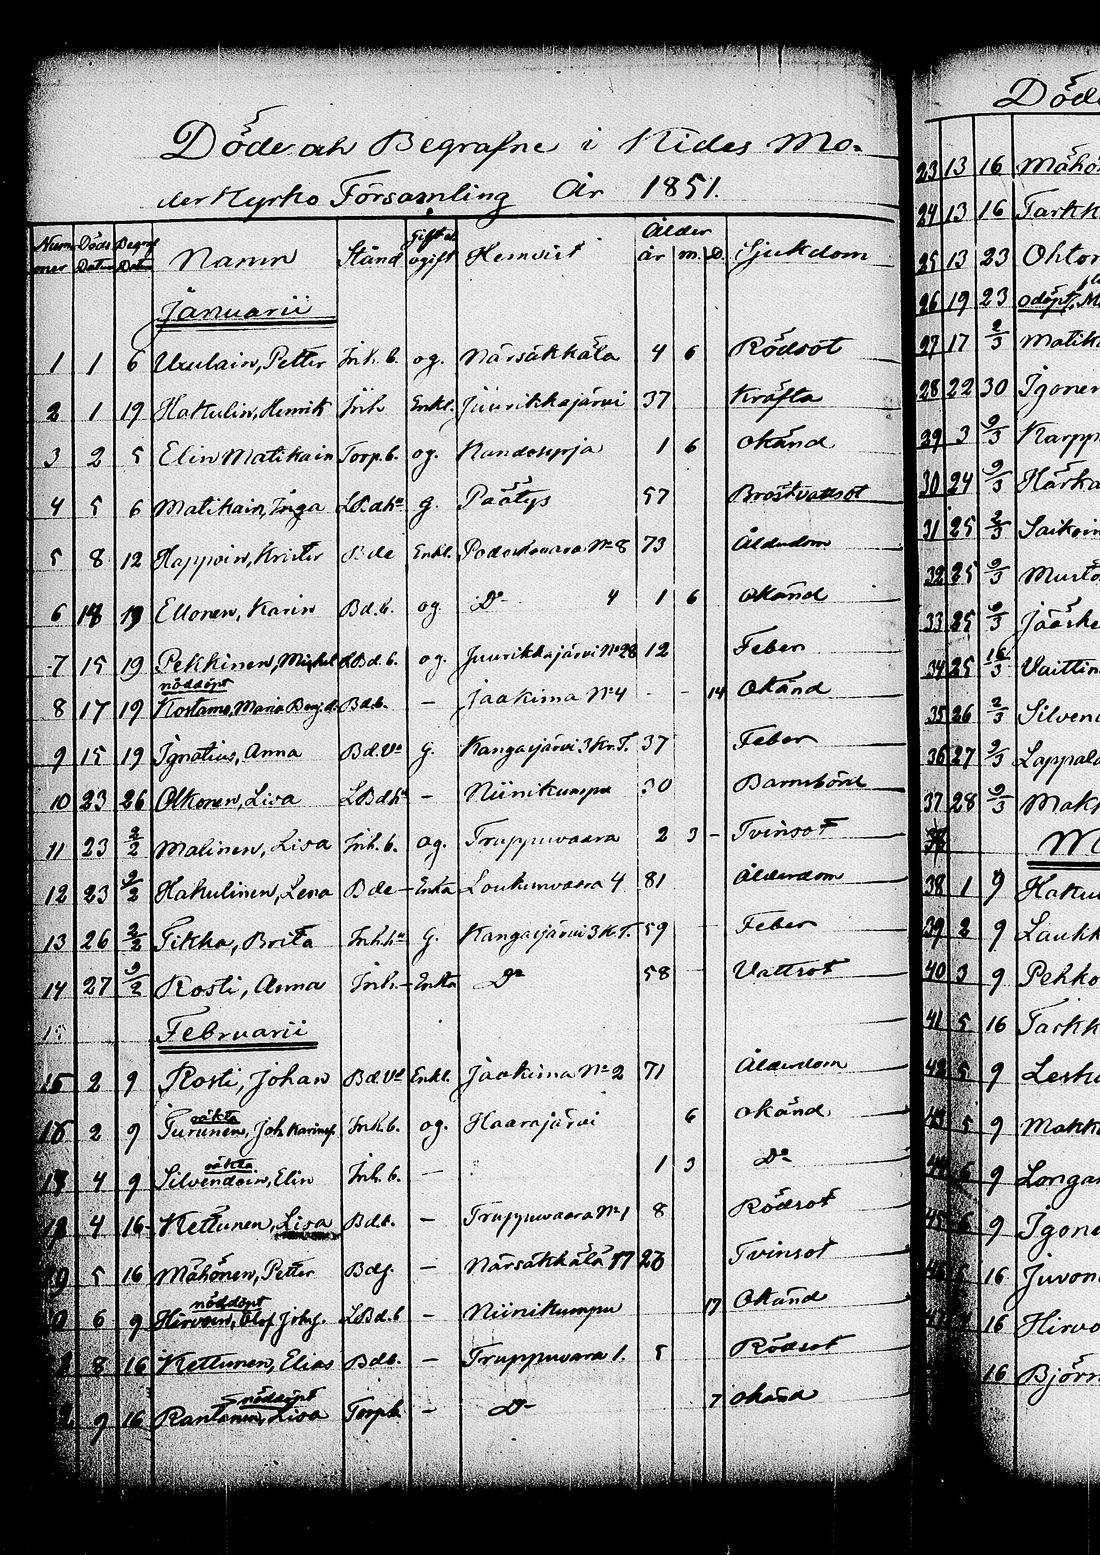 Döde och Begrafne i Kides Mo-
derkyrko Församling År 1851.
Nummer Döds Datum Begraf Datum Namn Stånd Gift el. ogift Hemvist Ålder år m. D. Sjukdom
Januarii
1 1 6 Uzulain, Petter Inh. b. og. Närsäkkälä 4 6 Rödsot
2 1 19 Hakulin, Henrik Inh. Enkl. Juurikkajärvi 37 Kräfta
3 2 5 Elin Matikain Torp. b. og. Kandosyrja 1 6 okänd
4 5 6 Matikain, Inga g. Päätys 57 Bröstvattsot
5 8 12 Happoin, Krister Bde Enkl. Podoskovaara No 8 73 Ålderdom
6 18 19 Ellonen, Karin Bd. b. og. Do 4 1 6 okänd
7 15 19 Pekkinen, Mickel LBd. b. og. Juurikkajärvi No 28 12 Feber
nöddöpt
8 17 19 Kostamo, Maria Benj:d. Bdb. – Jaakima No 4 - - 14 Okänd
9 15 19 Ignatius, Anna Bd. g. Kangasjärvi 3 Kr.T. 37 Feber
10 23 26 Olkonen, Lisa – Niinikumpu 30 Barnsbörd
11 23 2/2 Malinen, Lisa Inh. b. og. Truppuvaara 2 3 – Tvinsot
12 23 2/2 Hakulinen, Lena Bde – Enka Loukunvaara 4 81 Ålderdom
13 26 2/2 Tikka, Brita g. Kangasjärvi 3 K.T. 59 Feber
14 27 2/2 Rosti, Anna Inh. – Enka Do 58 Vattsot
15 Februarii
15 2 9 Rosti, Johan Enkl. Jaakima No 2 71 Ålderdom
oäkta
16 2 9 Turunen, Joh Karinsf. Inh. b. og. Haarajärvi 6 okänd
oäkta
4 9 Silvendoin, Elin Inh. b. – 1 3 Do
4 16 Kettunen, Lisa Bdb. – Truppuvaara No 1 8 Rödsot
5 16 Mähönen, Petter Bdg. – Närsäkkälä 17 Tvinsot
nöddöpt
6 9 Hirvoin, Olof LBd. b – Niinikumpu 17 Okänd
8 16 Kettunen, Elias Bdb. – Truppuvaara 1. 5 Rödsot
nöddöpt
9 16 Rantanen, Lisa Torpb. – Do 7 okänd
Död
23 13 16 Mähö
24 13 16 Tarkk
25 13 23 Ohtor
26 19 23 odöpt, M
27 17 2/3 Matik
28 22 30 Igonen
29 3 2/3 Karpp
30 24 2/3 Härka
31 25 2/3 Saikoin
32 25 2/3 Musto
33 25 2/3 Jääske
34 25 16/3 Vaittin
35 26 2/3 Silven
36 27 2/3 Lappala
37 28 2/3 Makk
M
38 1 9 Haku
39 2 9 Laukk
40 3 9 Pekko
41 5 16 Tarkk
42 5 9 Lesk
43 5 9 Makk
44 6 9 Longa
45 6 9 Igone
16 Juvon
16 Hirvo
16 Björn